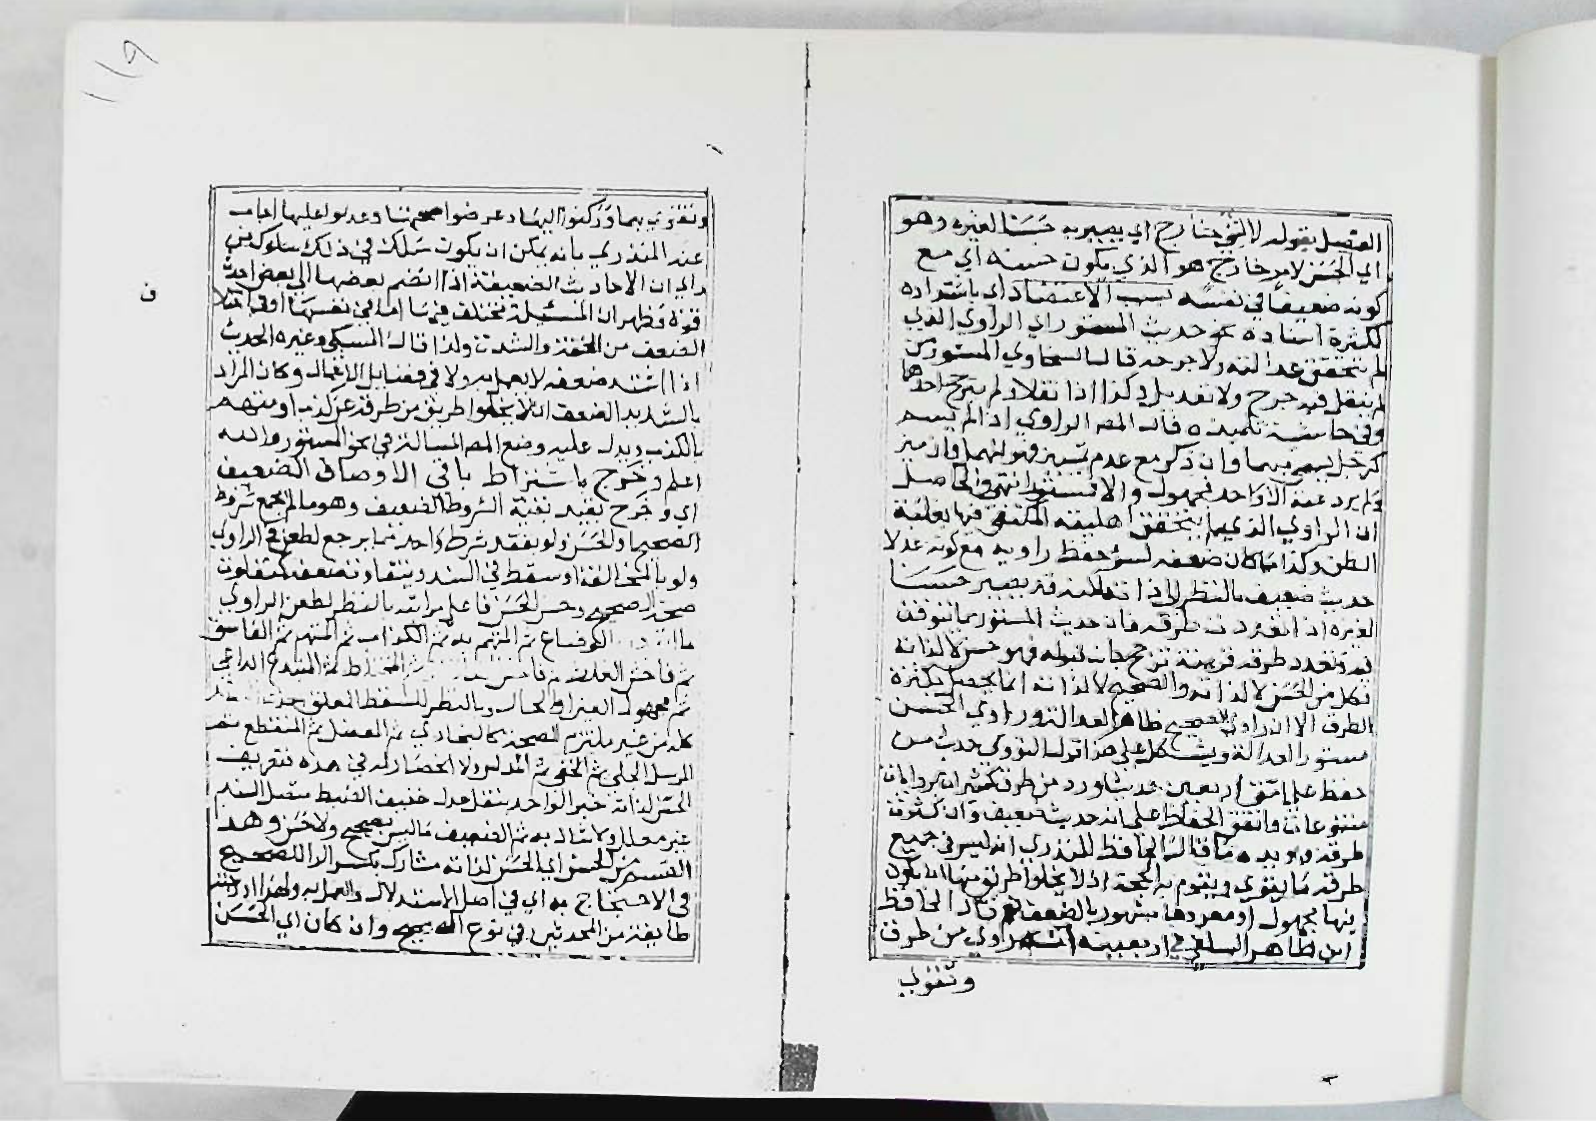 المتصل بقوله لا لشيء خارج اي يصير به حسنا لغيره وهو
اي الحسن لامر خارج هو الذي يكون حسنه اي مع
كونه ضعيفا في نفسه بسبب الاعتضاد اي باشتداده
لكثرة اسناده نحو حديث المستور اي الراوي الذي
لم يتحقق عدالته ولا جرحه قال السخاوي المستور من
لم ينقل فيه جرح ولا تعديل وكذا اذا نقلا ولم يترجح احدهما
وفي حاشية تلميذه قال المص الراوي اذا لم يسم
كرجل يسمى مبهما وان ذكر مع عدم تمييز فهو المهمل وان ميز
ولم يرد عنه الا واحد فمجهول والا فمستور انتهى والحاصل
ان الراوي الذي لم يتحقق اهليته المكتفى فيها بغلبة
الظن وكذا ما كان ضعفه لسوء حفظ راويه مع كونه عدلا
حديث ضعيف بالنظر الى ذاته لكنه قد يصير حسنا
لغيره اذا تعددت طرقه فان حديث المستور مما يتوقف
فيه وتعدد طرقه قرينة ترجح جانب قبوله فهو حسن لا لذاته
فكل من الحسن لا لذاته والصحيح لا لذاته انما يحصل بكثرة
الطرق الا ان راوي الصحيح ظاهر العدالة وراوي الحسن
مستور العدالة ويشكل على هذا قول النووي حديث من
حفظ على امتي اربعين حديثا ورد من طرق كثيرات بروايات
متنوعات واتفق الحفاظ على انه حديث ضعيف وان كثرت
طرقه ويؤيده ما قال الحافظ المنذري انه ليس في جميع
طرقه ما يقوى ويقوم به الحجة اذ لا يخلو طريق منها ان يكون
فيها مجهول او معروف مشهور بالضعف نعم قال الحافظ
ابن طاهر السلفي في اربعينه انه روي من طرق
وثقوا
١١٩
وثقوا بها وركنوا اليها وعرفوا صحتها وعولوا عليها اجاب
عنه المنذري بانه يمكن ان يكون سلك في ذلك سلوك من
راى ان الاحاديث الضعيفة اذا انضم بعضها الى بعض احدث
قوة فظهر ان المسئلة مختلف فيها اما في نفسها او في اختلا
الضعف من الخفة والشدة ولذا قال السبكي وغيره الحديث
اذا اشتد ضعفه لا يعمل به ولا في فضايل الاعمال وكان المراد
بالشديد الضعف الذي لا يخلو طريق من طرقه عن كذاب او متهم
بالكذب ويدل عليه وضع المص المسالة في نحو المستور والله
اعلم وخرج باشتراط باقي الاوصاف الضعيف
اي وخرج بقيد بقية الشروط الضعيف وهو ما لم يجمع شروط
الصحيح والحسن ولو بفقد شرط واحد مما يرجع لطعن في الراوي
ولو بالمخالفة او سقط في السند ويتفاوت ضعفه كتفاوت
صحة الصحيح وحسن الحسن فاعلى مراتبه بالنظر لطعن الراوي
ما انفرد به الوضاع ثم المتهم به ثم الكذاب ثم المتهم ثم الفاسق
ثم فاحش الغلط ثم فاحش المخالفة ثم المختلط ثم المبتدع الداعي
ثم مجهول العين او الحال وبالنظر للسقط المعلق حذف سنده
كله من غير ملتزم الصحة كالبخاري ثم المعضل ثم المنقطع ثم
المرسل الجلي ثم الخفي ثم المدلس ولا انحصار له في هذه فتعريف
الحسن لذاته خبر الواحد بنقل عدل خفيف الضبط متصل السند
غير معلل ولا شاذ به ثم الضعيف ما ليس بصحيح ولا حسن وهذا
القسم من الحسن اي الحسن لذاته مشارك بكسر الراء للصحيح
في الاحتجاج به اي في اصل الاستدلال والعمل به ولهذا ادرجته
طايفة من المحدثين في نوع الصحيح وان كان اي الحسن
ف